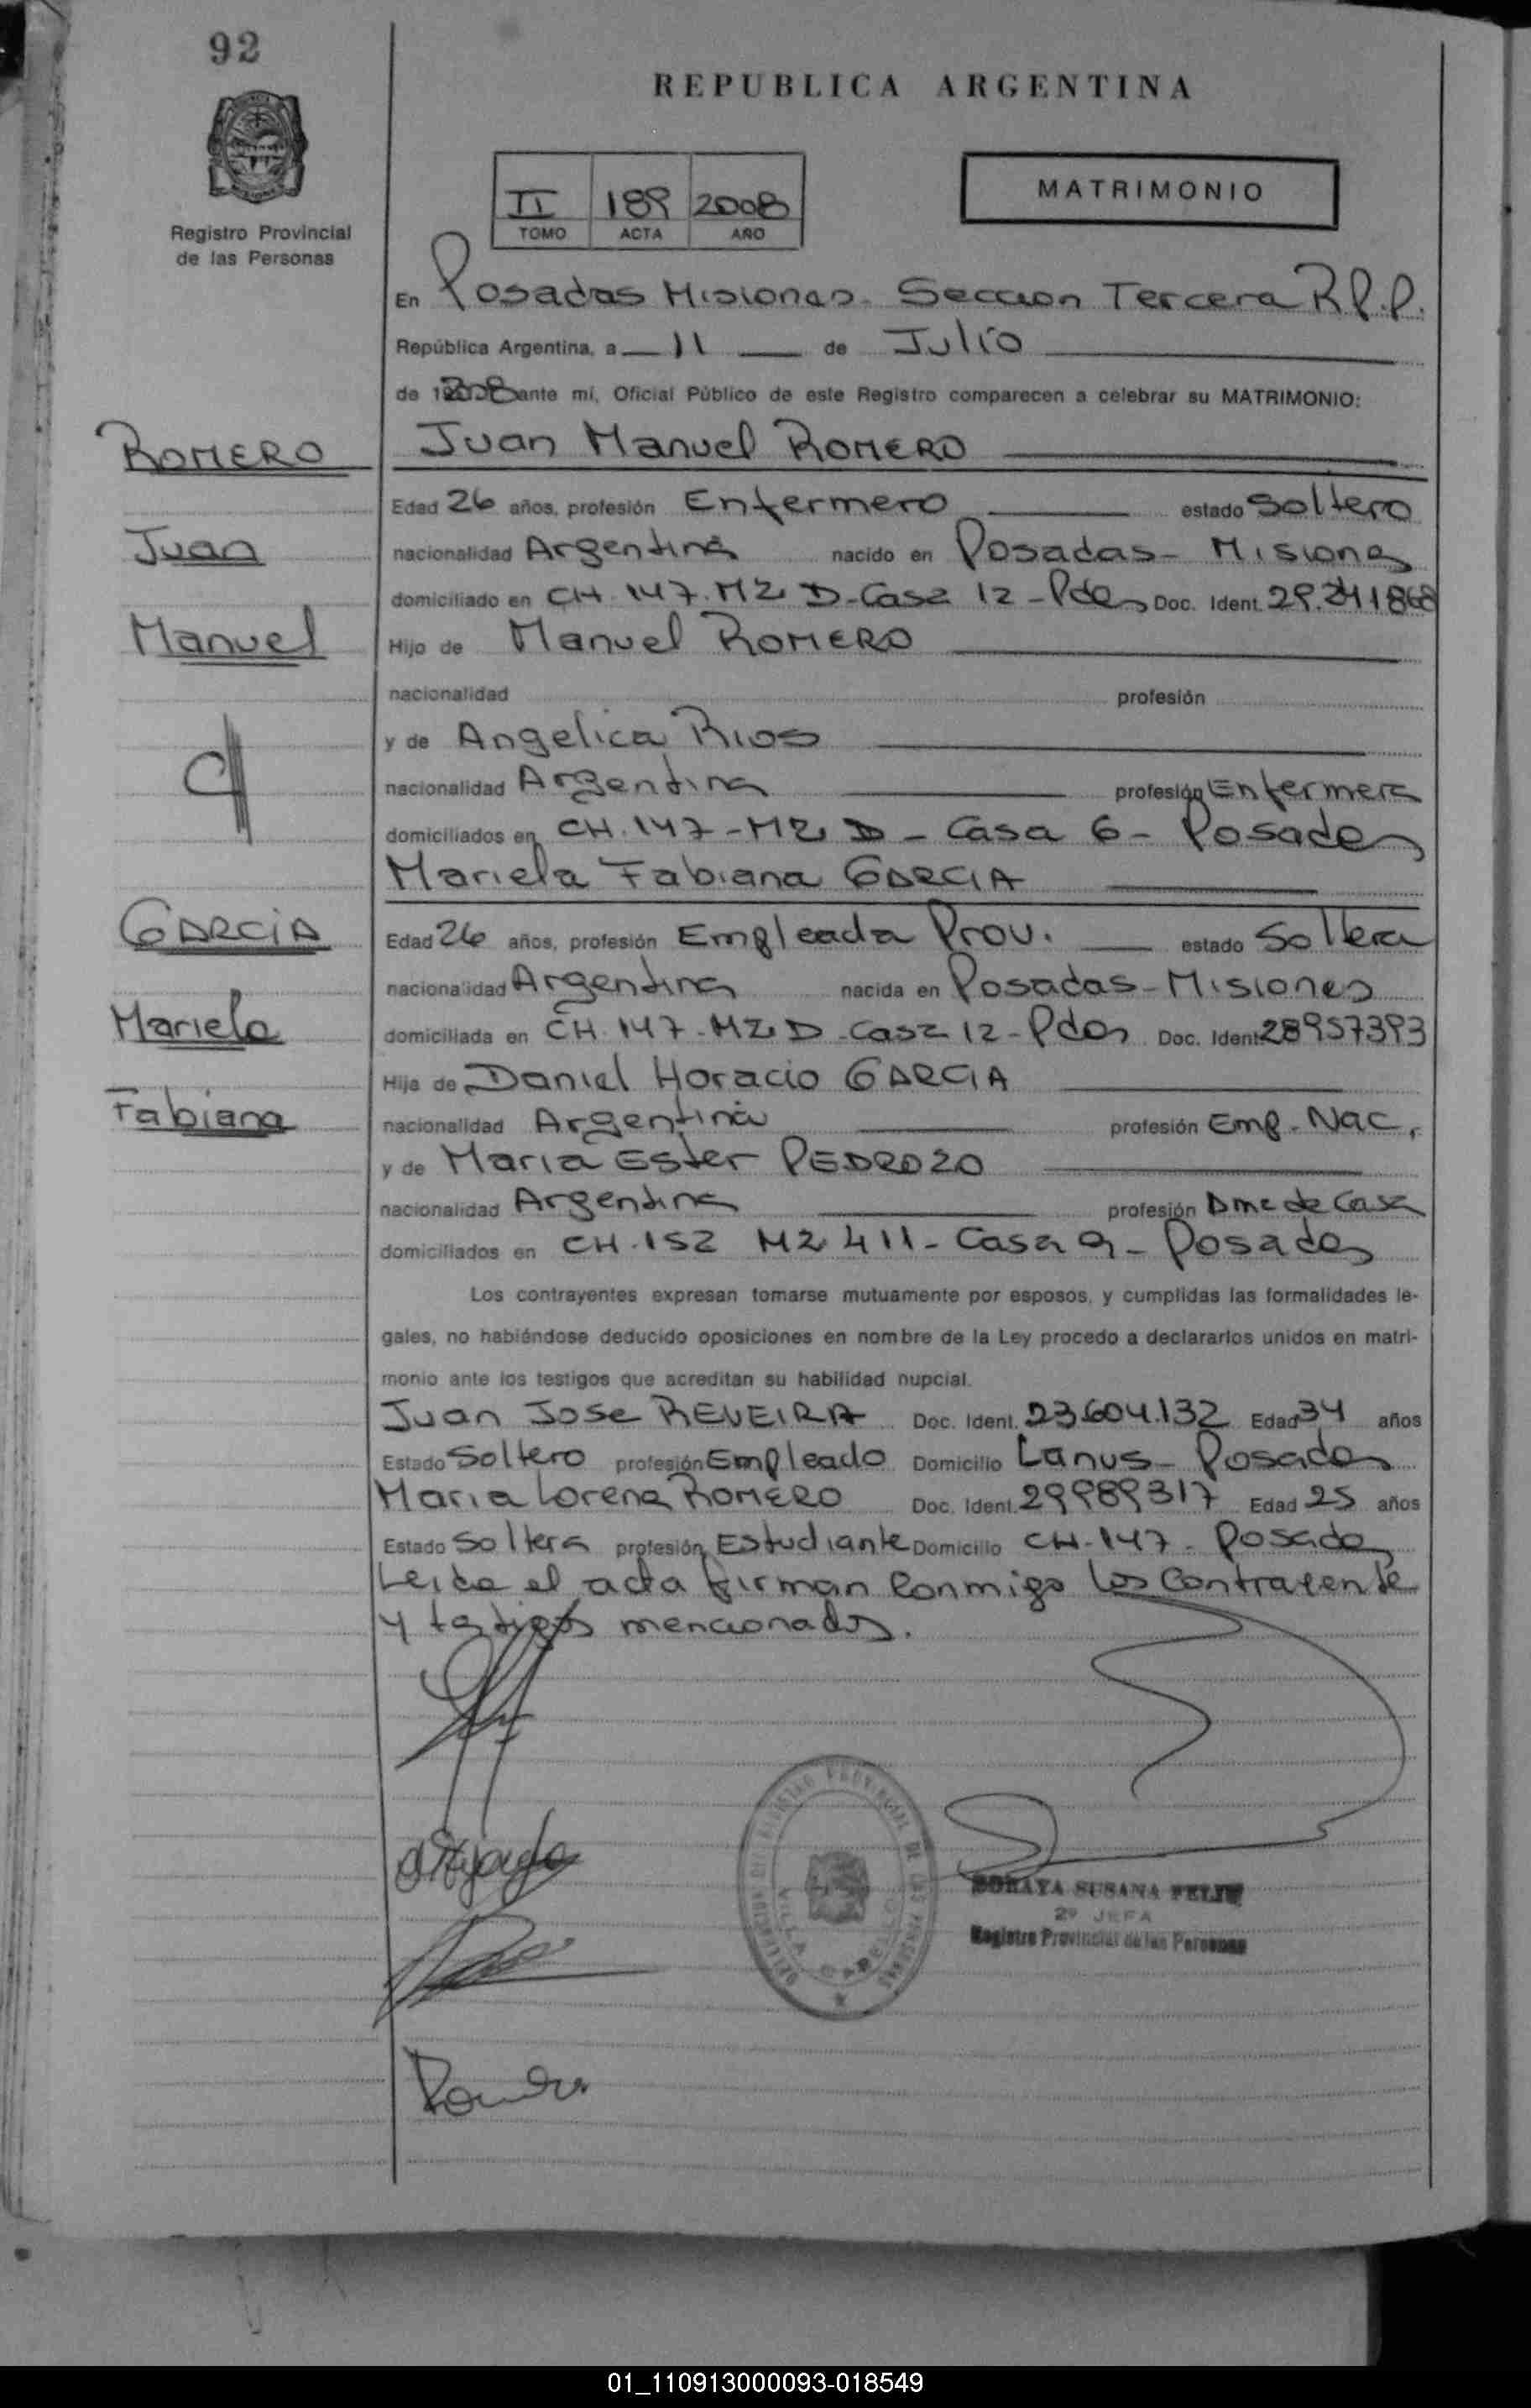 92
REPUBLICA ARGENTINA
Registro Provincial
de las Personas
II 189 2008
TOMO ACTA AÑO
MATRIMONIO
En Posadas Misiones. Seccion Tercera R.P.P.
República Argentina, a 11 de Julio
de 2008 ante mí, Oficial Público de este Registro comparecen a celebrar su MATRIMONIO:
ROMERO
Juan Manuel ROMERO
Edad 26 años, profesión Enfermero estado Soltero
Juan
nacionalidad Argentina nacido en Posadas - Misiones
domiciliado en CH. 147. Mz D - Casa 12 - Pdas Doc. Ident. 29.241868
Manuel
Hijo de Manuel ROMERO
nacionalidad profesión
y de Angelica Rios
c/
nacionalidad Argentina profesión Enfermera
domiciliados en CH. 147 - Mz D - Casa 6 - Posadas
Mariela Fabiana GARCIA
GARCIA
Edad 26 años, profesión Empleada Prov. estado Soltera
nacionalidad Argentina nacida en Posadas - Misiones
Mariela
domiciliada en CH. 147 - Mz D - Casa 12 - Pdas Doc. Ident 28957393
Hija de Daniel Horacio GARCIA
Fabiana
nacionalidad Argentina profesión Emp. Nac.
y de Maria Ester PEDROZO
nacionalidad Argentina profesión Ama de Casa
domiciliados en CH. 152 Mz 411 - Casa 9 - Posadas
Los contrayentes expresan tomarse mutuamente por esposos, y cumplidas las formalidades le-
gales, no habiéndose deducido oposiciones en nombre de la Ley procedo a declararlos unidos en matri-
monio ante los testigos que acreditan su habilidad nupcial.
Juan Jose REVEIRA Doc. Ident. 23.604.132 Edad 34 años
Estado Soltero profesión Empleado Domicilio Lanus - Posadas
Maria Lorena ROMERO Doc. Ident. 29989317 Edad 25 años
Estado Soltera profesión Estudiante Domicilio CH. 147 - Posadas
Leida el acta firman conmigo los contrayente
y testigos mencionados.
REGISTRO PROVINCIAL DE LAS PERSONAS
VILLA CABELLO
SORAYA SUSANA FELIU
2º JEFA
Registro Provincial de las Personas
01_110913000093-018549